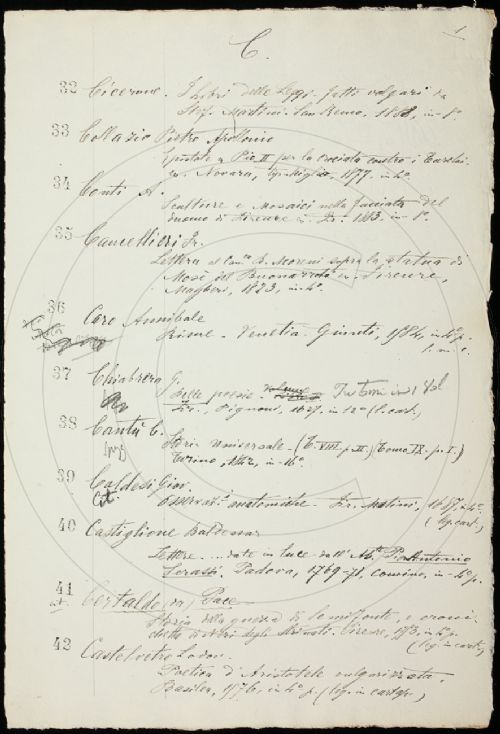 1
C.
32 Cicerone. I libri delle Leggi fatti volgari da
Martini. San Remo, 18 in-8°.
33 Collazio Pietro Apollonio
Epistole a Pio II per la crociata contro i Turchi.
Novara, tip. Miglio, 1877. in-4°.
34 Conti A.
Sculture e Mosaici nella facciata del
duomo di Firenze. Fir. 1883, in-8°.
35 Cancellieri Fr.
Lettera al Can.co D. Moreni sopra la statua di
Mosè del Buonarroti. Firenze,
Magheri, 1823, in-4°.
36 Caro Annibale
Rime. Venetia. Giunti, 1584, in-4° p.
37 Chiabrera G.
delle poesie. Tre tomi in 1 Vol
Fir., Pignoni, 1627. in 12° (l. cart.)
38 Cantù C.
Storia Universale. (T. VIII. p. II.) (Tomo IX. p. I.)
Torino, in-16°.
39 Caldesi Giov.
Osservaz.i anatomiche. Fir. Matini, 1687. in-4°.
(leg. cart.)
40 Castiglione Baldessar
Lettere ... date in luce dall' Ab.te Pierantonio
Serassi. Padova, 1769-71, Comino, in-4° p.
41 Certaldo (da) Pace
Storia della guerra di Semifonte, e croni-
chetta di Neri degli Strinati. Firenze, in-8° p.
(leg. in cart.)
42 Castelvetro Lodov.
Poetica d'Aristotele vulgarizzata.
Basilea, 1576, in-4° p. (leg. in cartap.)